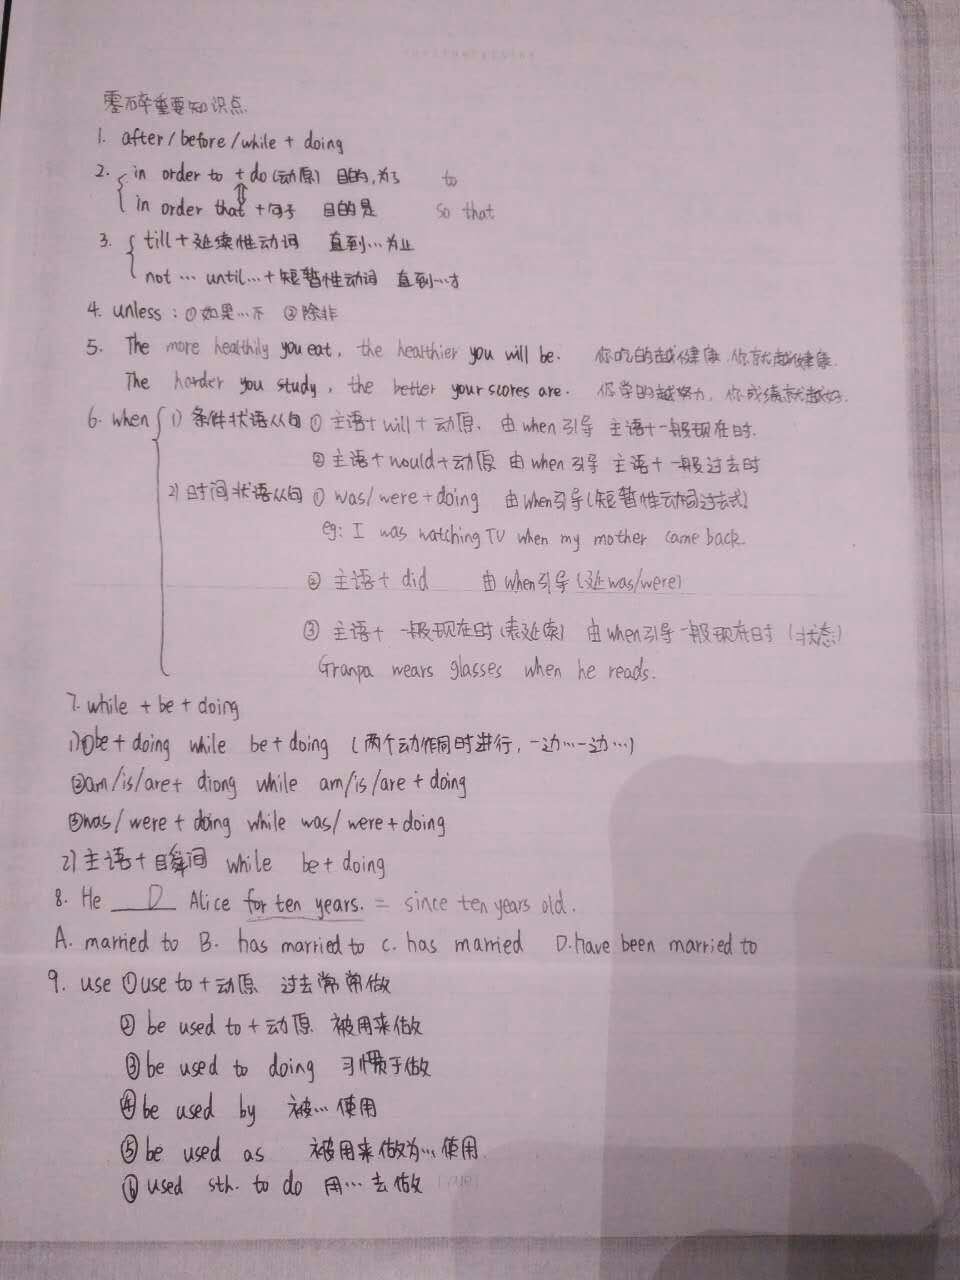 零碎重要知识点
1. after/before/while + doing
2. in order to + do(动原) 目的,为了 to
in order that + 句子 目的是 so that
3. till + 延续性动词 直到…为止
not … until…+短暂性动词 直到…才
4. unless: ①如果…不 ②除非
5. The more healthily you eat, the healthier you will be. 你吃的越健康,你就越健康.
The harder you study, the better your scores are. 你学的越努力,你成绩就越好.
6. when 1) 条件状语从句 ① 主语+will+动原. 由when引导 主语+一般现在时.
② 主语+would+动原 由when引导 主语+一般过去时
2) 时间状语从句 ① was/were+doing 由when引导(短暂性动词过去式)
eg: I was watching TV when my mother came back.
② 主语+ did 由when引导(延was/were)
③ 主语+ 一般现在时(表延续) 由when引导一般现在时 (状态)
Granpa wears glasses when he reads.
7. while + be + doing
1)①be+doing while be+doing (两个动作同时进行,一边…一边…)
②am/is/are+ diong while am/is/are+doing
③was/were+doing while was/were+doing
2)主语+瞬间 while be+doing
8. He D Alice for ten years. = since ten years old.
A. married to B. has married to C. has married D. have been married to
9. use ①use to+动原 过去常常做
② be used to+动原. 被用来做
③ be used to doing 习惯于做
④ be used by 被…使用
⑤ be used as 被用来做为…使用
⑥ used sth. to do 用…去做